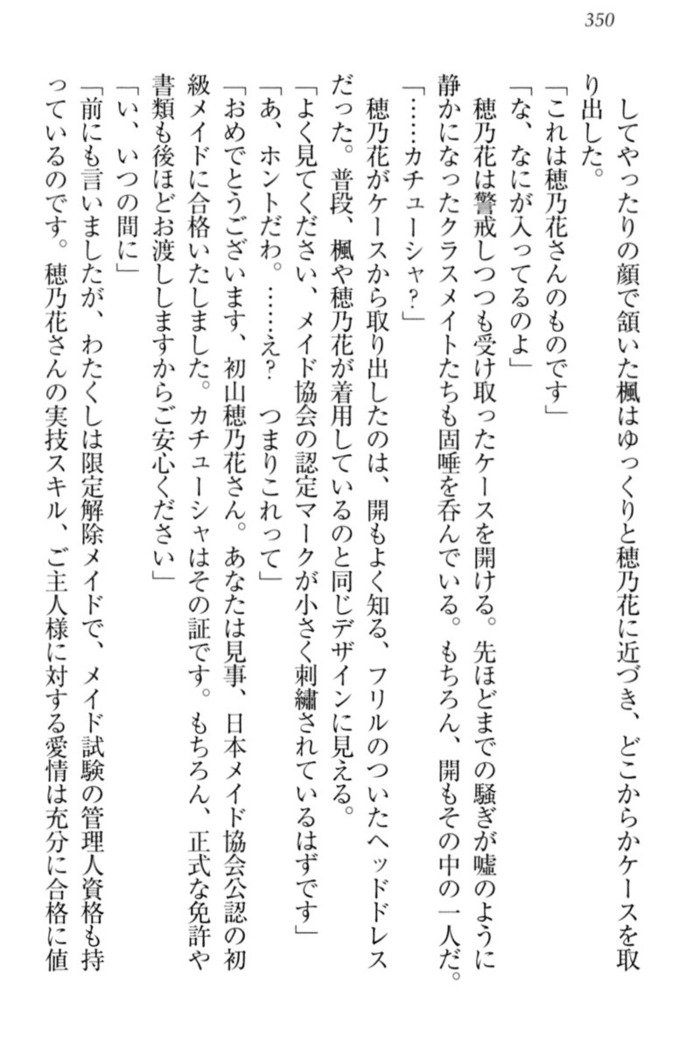 350
してやったりの顔で頷いた楓はゆっくりと穂乃花に近づき、どこからかケースを取
り出した。
「これは穂乃花さんのものです」
「な、なにが入ってるのよ」
穂乃花は警戒しつつも受け取ったケースを開ける。先ほどまでの騒ぎが嘘のように
静かになったクラスメイトたちも固唾を呑んでいる。もちろん、開もその中の一人だ。
「……カチューシャ?」
穂乃花がケースから取り出したのは、開もよく知る、フリルのついたヘッドドレス
だった。普段、楓や穂乃花が着用しているのと同じデザインに見える。
「よく見てください、メイド協会の認定マークが小さく刺繍されているはずです」
「あ、ホントだわ。……え?　つまりこれって」
「おめでとうございます、初山穂乃花さん。あなたは見事、日本メイド協会公認の初
級メイドに合格いたしました。カチューシャはその証です。もちろん、正式な免許や
書類も後ほどお渡ししますからご安心ください」
「い、いつの間に」
「前にも言いましたが、わたくしは限定解除メイドで、メイド試験の管理人資格も持
っているのです。穂乃花さんの実技スキル、ご主人様に対する愛情は充分に合格に値